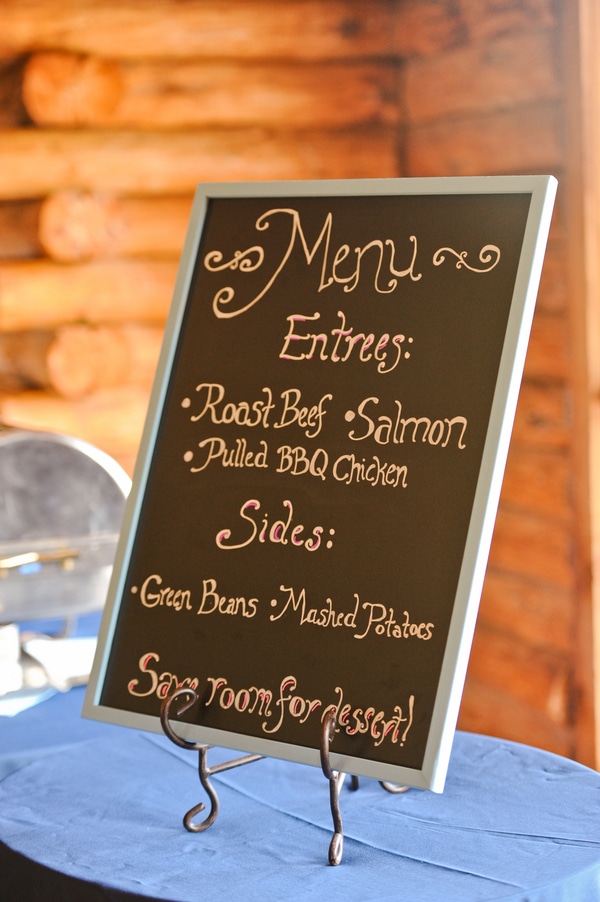 Menu
Entrees:
•Roast Beef •Salmon
•Pulled BBQ Chicken
Sides:
•Green Beans •Mashed Potatoes
Save room for dessert!